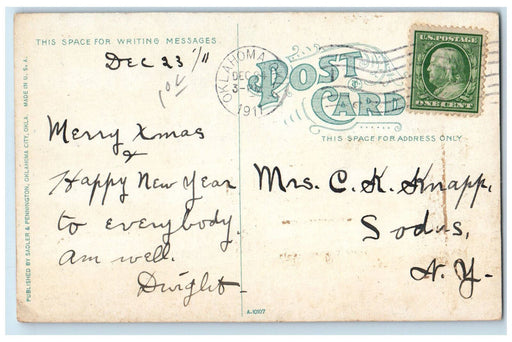 THIS SPACE FOR WRITING MESSAGES.
Dec 23 '11
OKLAHOMA
DEC
3-
1911
POST
CARD
U.S. POSTAGE
ONE CENT
THIS SPACE FOR ADDRESS ONLY
Merry Xmas
&
Happy New Year
to everybody.
Am well.
Dwight-
Mrs. C. K. Knapp,
Sodus,
N. Y-
PUBLISHED BY SADLER & PENNINGTON, OKLAHOMA CITY, OKLA. MADE IN U.S.A.
A-10107